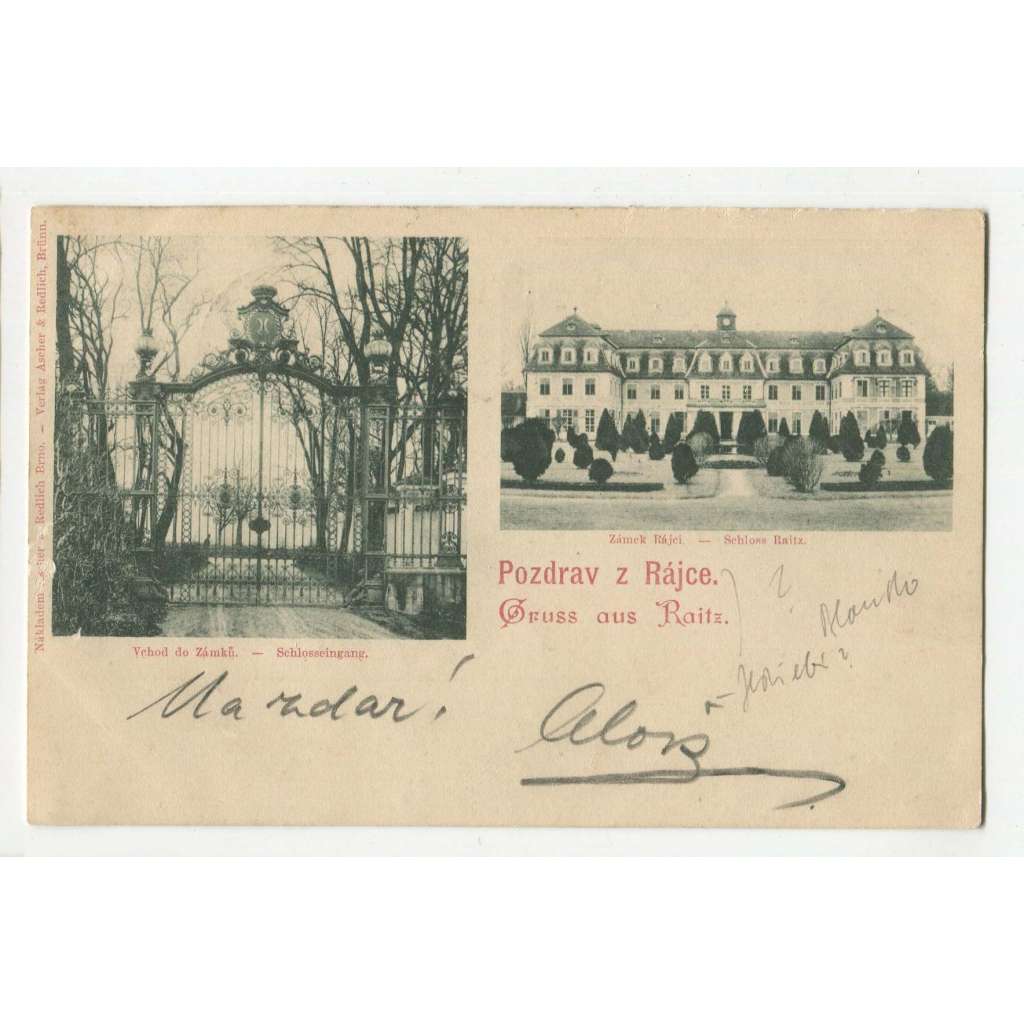 Nákladem Ascher & Redlich Brno. — Verlag Ascher & Redlich, Brünn.
Vchod do Zámků. — Schlosseingang.
Zámek Rájci. — Schloss Raitz.
Pozdrav z Rájce.
Gruss aus Raitz.
?
Na zdar!
Alois